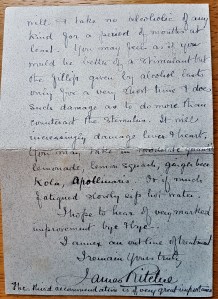 milk. I take no alcoholic of any
kind for a period of months at
least. You may been as if you
would be better of a stimulant but
the fillip given by alcohol lasts
only for a very short time & does
such damage as to do more than
counteract the stimulus. It will
increasingly damage liver & heart.
You may take in moderate
lemonade, lemon squash, ginger beer
Kola, Apollinaris. If if much
fatigued slowly sip hot water.
I hope to hear of very marked
improvement bye & bye.
I annex an outline of treatment
I remain Yours truly
James Ritchie
The third recommendation is of very great importance